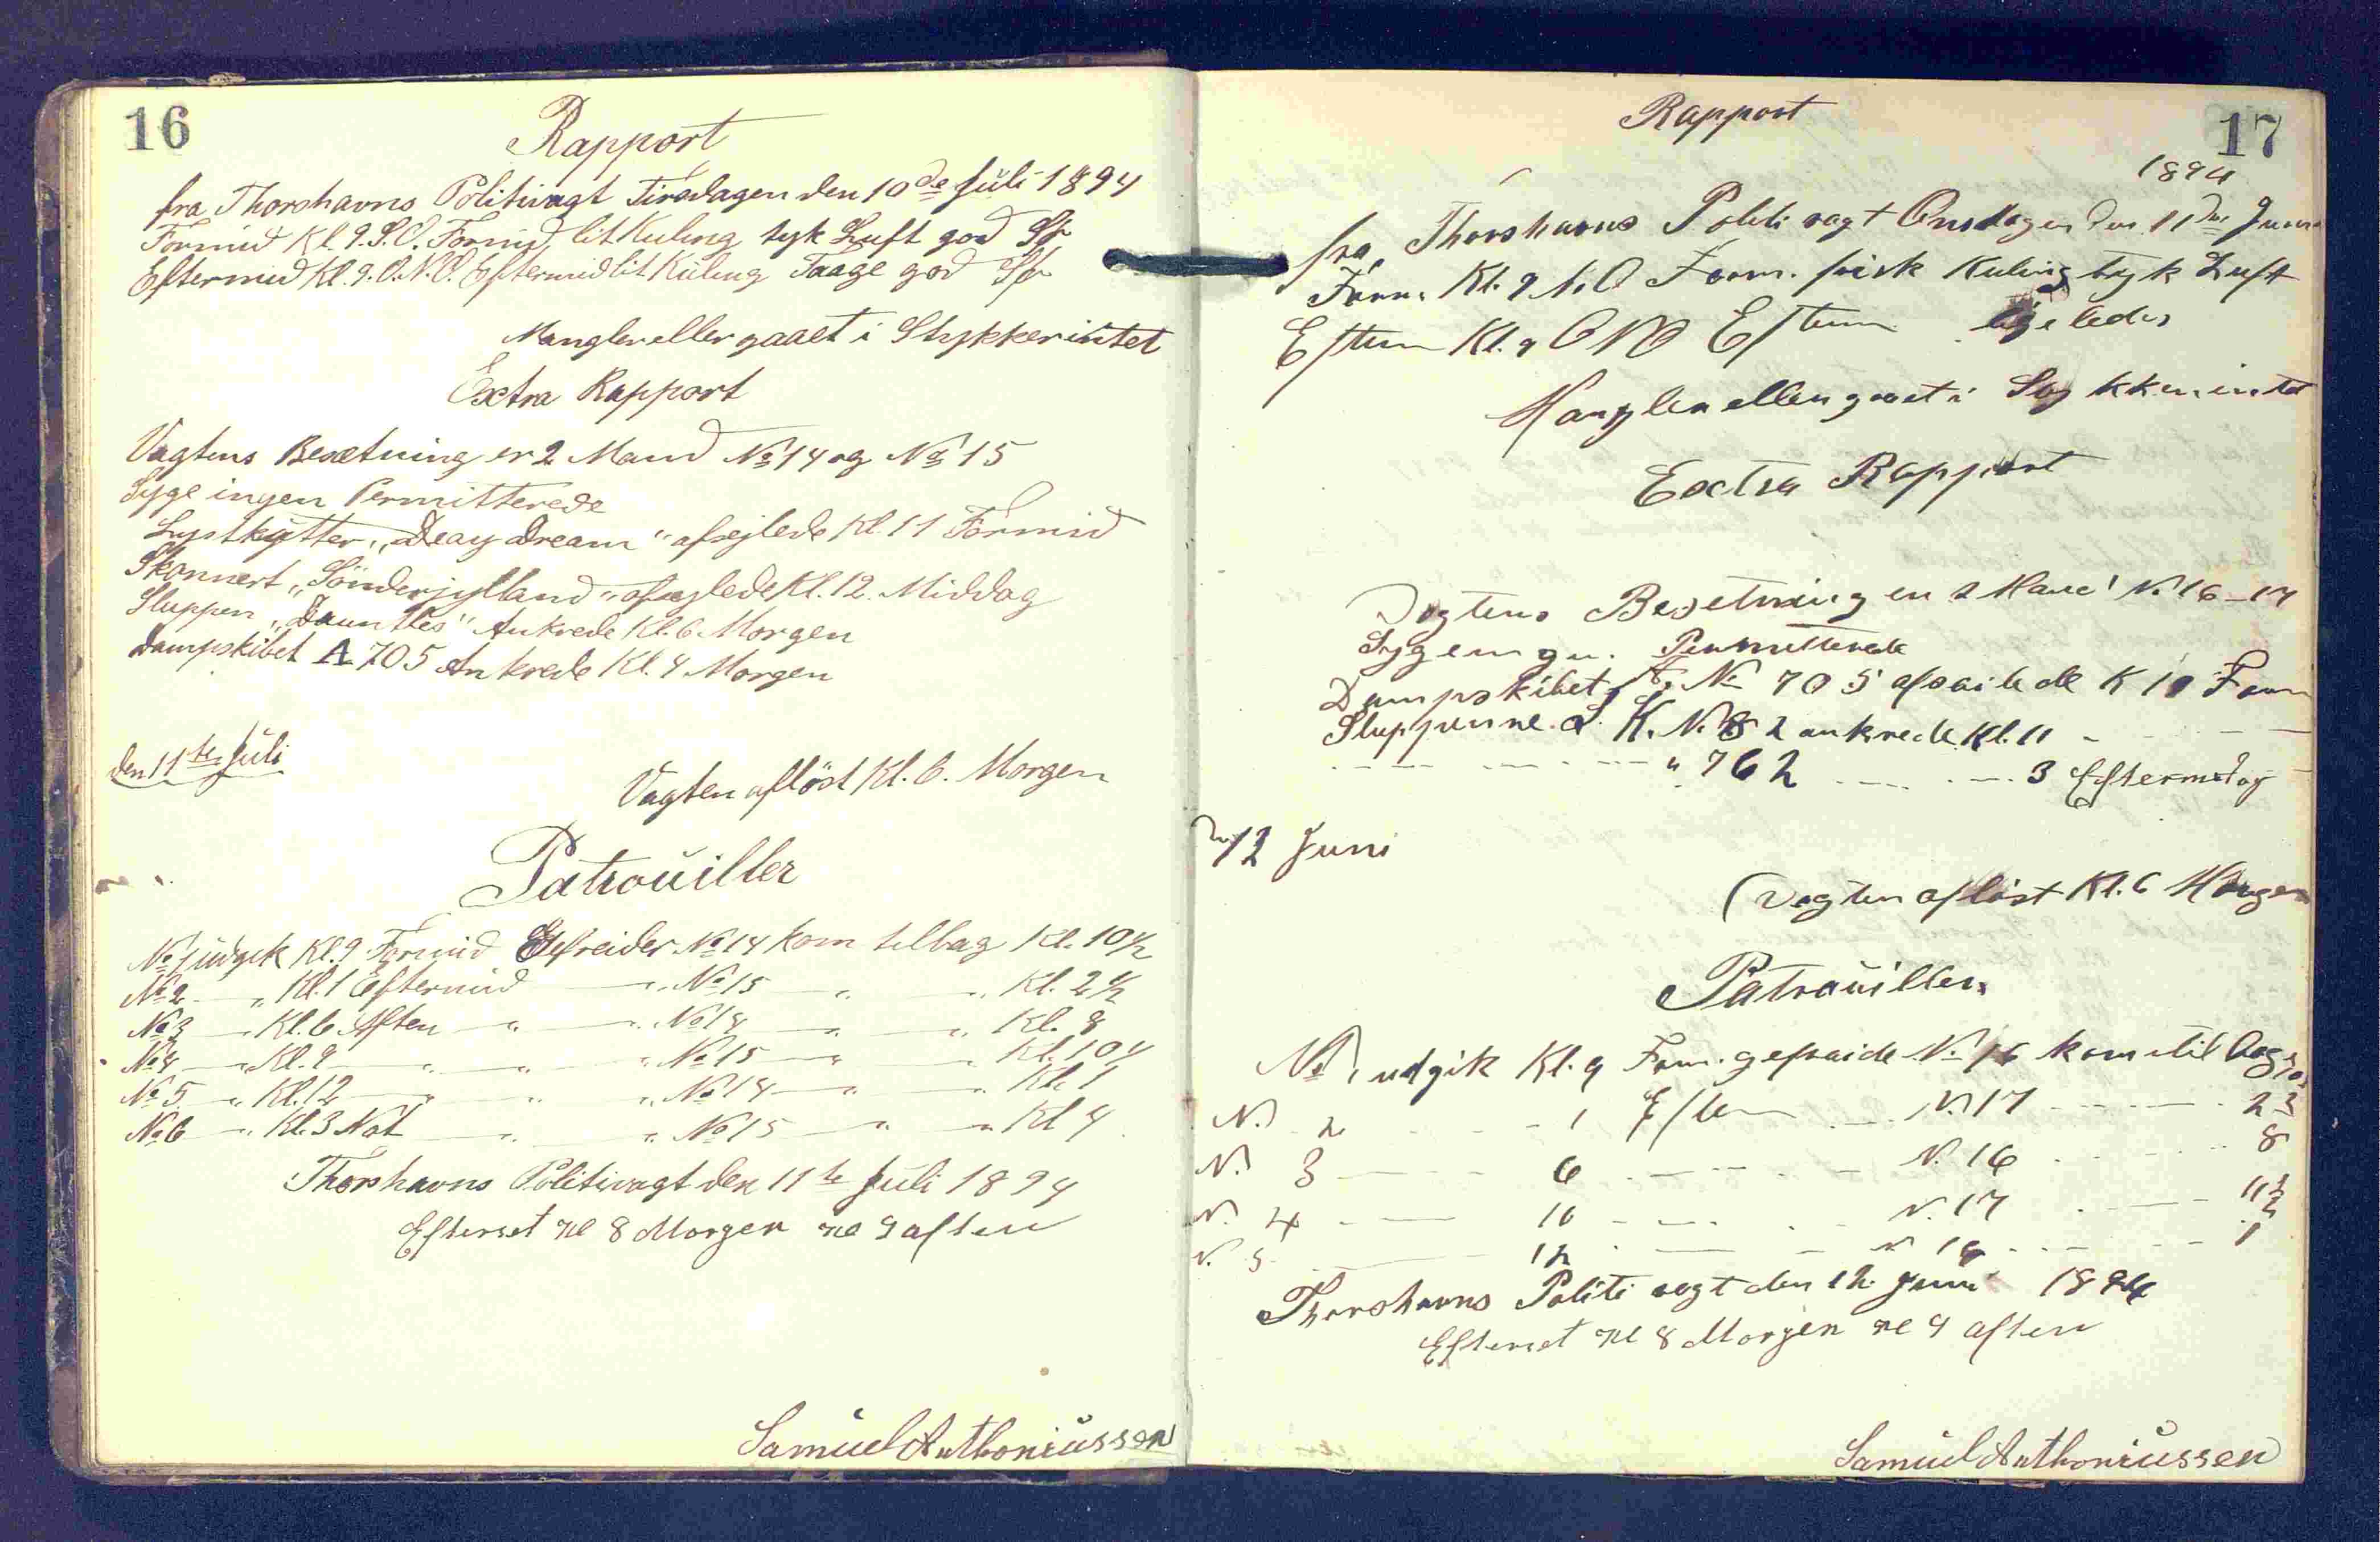 16
Rapport
fra Thorshavns Politivagt Tirsdagen den 10de Juli 1894
Formid Kl. 9. S.O. Formid, lit Kuling tyk Luft god
Eftermid Kl. 9. O.N.O. Eftermid lit Kuling Taage god
Mangler eller gaaet i Stykker intet
Extra Rapport
Vagtens Besætning er 2 Mand No 14 og No 15
Syge ingen Permitterede
Lystkutter „Deay Dream" afsejlede Kl. 11 Formid
Skonnert „Sönderjylland" afsejlede Kl. 12. Middag
Sluppen „Dauntles" Ankrede Kl. 6 Morgen
Dampskibet A 705 Ankrede Kl. 4 Morgen
den 11te Juli
Vagten aflöst Kl. 6. Morgen
Patrouiller
No 1 udgik Kl. 9 Formid Gefreider No 14 kom tilbag Kl. 10 1/2
No 2 — „ Kl. 1 Eftermid — „ No 15 — „ — „ Kl. 2 1/2
No 3 — Kl. 6 Aften — „ — „ No 14 — „ — „ Kl. 8
No 4 — „ Kl. 9 — „ — „ — „ No 15 — „ — Kl. 10
No 5 — „ Kl. 12 — „ — „ — „ No 14 — „ — „ Kl. 1
No 6 — „ Kl. 3 Nat — „ — „ No 15 — „ — „ Kl 4
Thorshavns Politivagt den 11te Juli 1894
Efterset Kl 8 Morgen Kl 9 aften
Samuel Anthoniussen
17
Rapport
1894
fra, Thorshavns Politi vagt Onsdagen den 11de Juni
Form. Kl. 9 N.O Form. frisk Kuling tyk Luft
Efterm Kl. 9 ONO Efterm ligeledes
Mangler eller gaaet i Stykker intet
Exctra Rapport
Vagtens Besetning er 2 Mand No 16 – 17
Syge ingen. Permitterede
Dampskibet A. No 705 afsailede K 10 Form
Slupperne L. K. No 82 ankrede Kl. 11 - - - -
- - - - - „ 762 - - - - 3 Eftermidag
den 12 Juni
Vagten afløst Kl. 6 Morgen
Patrouiller
No 1 udgik Kl. 9 Form. gefraide No 16 kom til bag
N. 2 - - 1 Efterm - - N. 17 - - - -
N. 3 - - - 6 - - - - N. 16 - - - 8
N. 4 - - 10 - - - - N. 17 - - - 11 1/2
N. 5 - - 12 - - - N 16 - - - 1
Thorshavns Politi vagt den 12. Juni 1894
Efterset Kl 8 Morgen Kl 9 aften
Samuel Anthoniussen